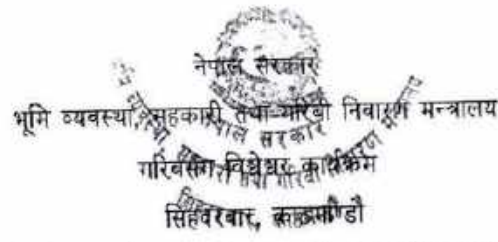 नेपाल सरकार
भूमि व्यवस्था, सहकारी तथा गरिबी निवारण मन्त्रालय
नेपाल सरकार
गरिबसंग विश्वेश्वर कार्यक्रम
सिंहदरबार, काठमाण्डौ